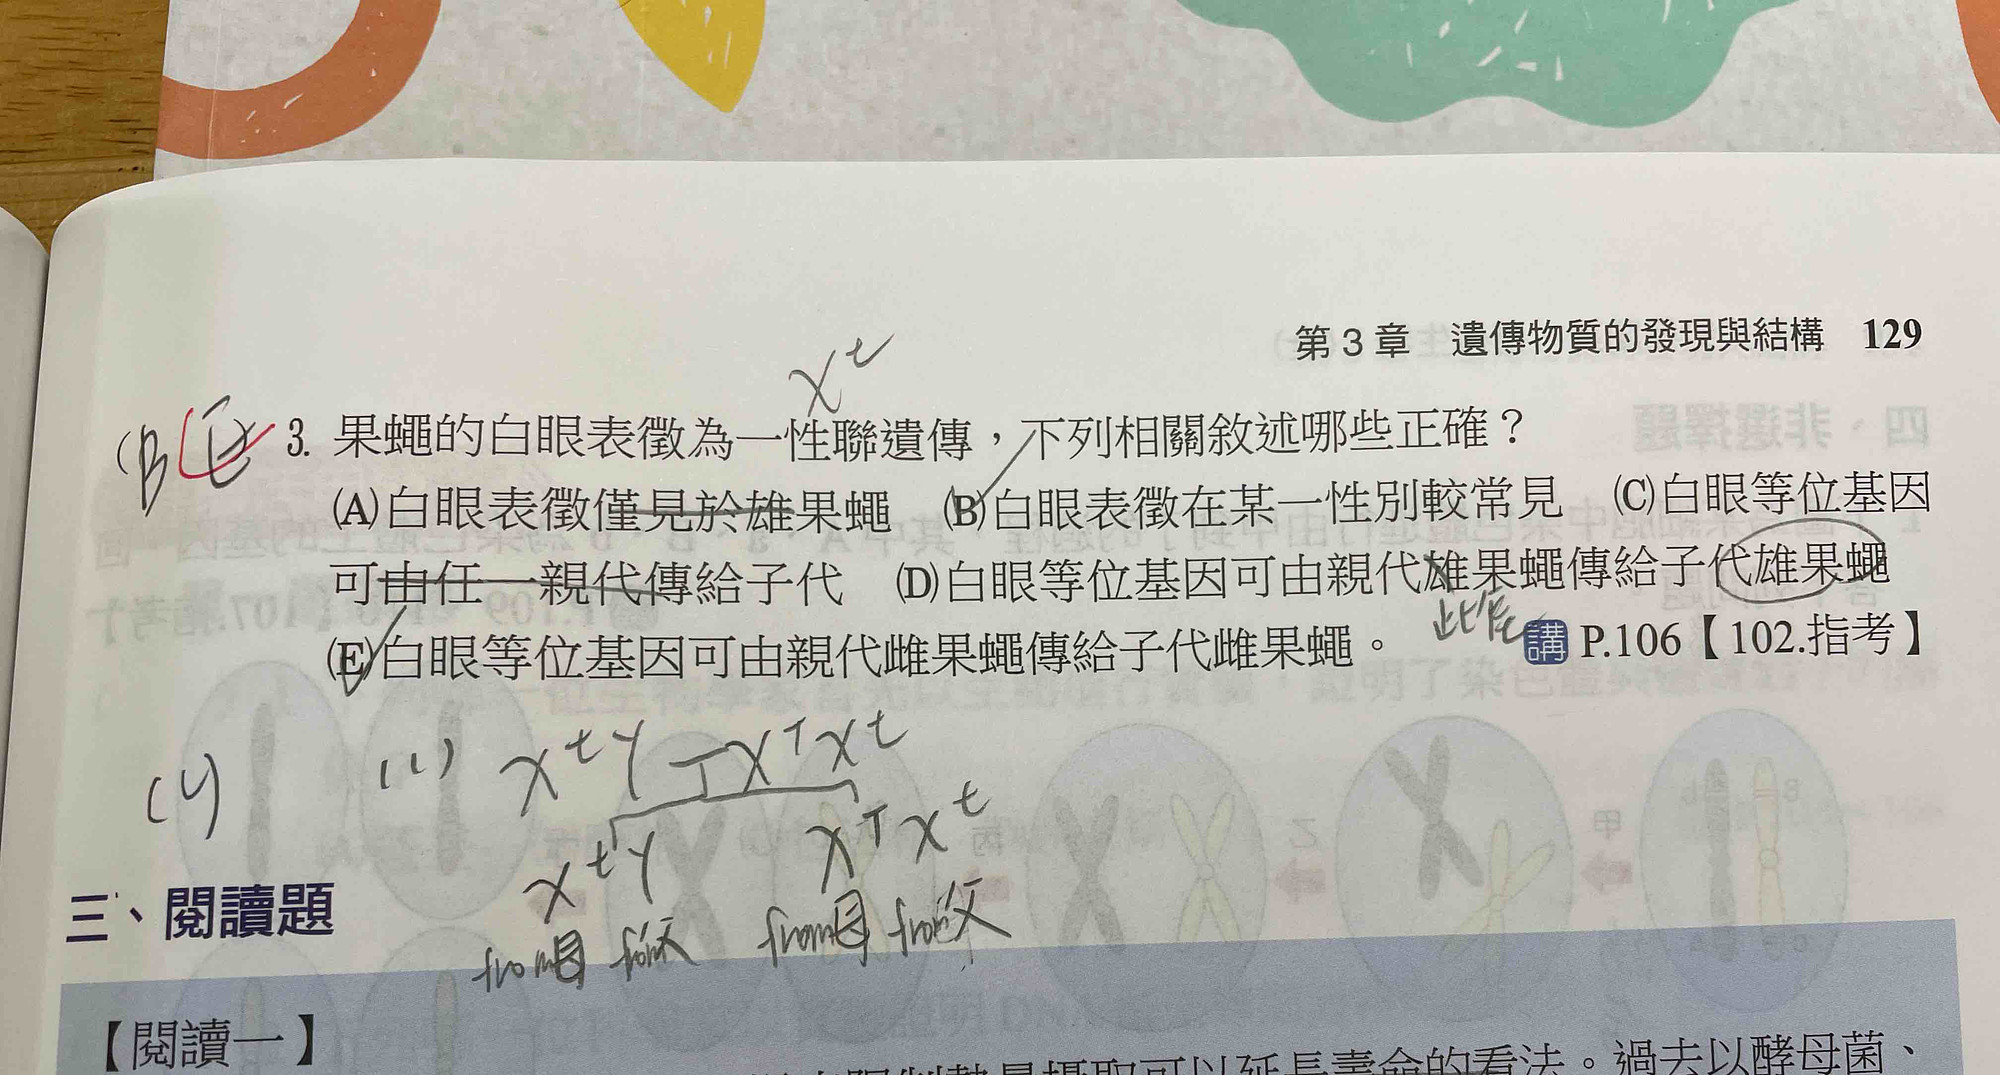 第3章 遺傳物質的發現與結構 129
X^t
(B E 3. 果蠅的白眼表徵為一性聯遺傳,下列相關敘述哪些正確?
(A)白眼表徵僅見於雄果蠅 (B)白眼表徵在某一性別較常見 (C)白眼等位基因
可由任一親代傳給子代 (D)白眼等位基因可由親代雄果蠅傳給子代雄果蠅
(E)白眼等位基因可由親代雌果蠅傳給子代雌果蠅。 講 P.106【102.指考】
X^tY X^TX^t
X^tY X^TX^t
from母 from父 from母 from父
三、閱讀題
【閱讀一】
過去以酵母菌、